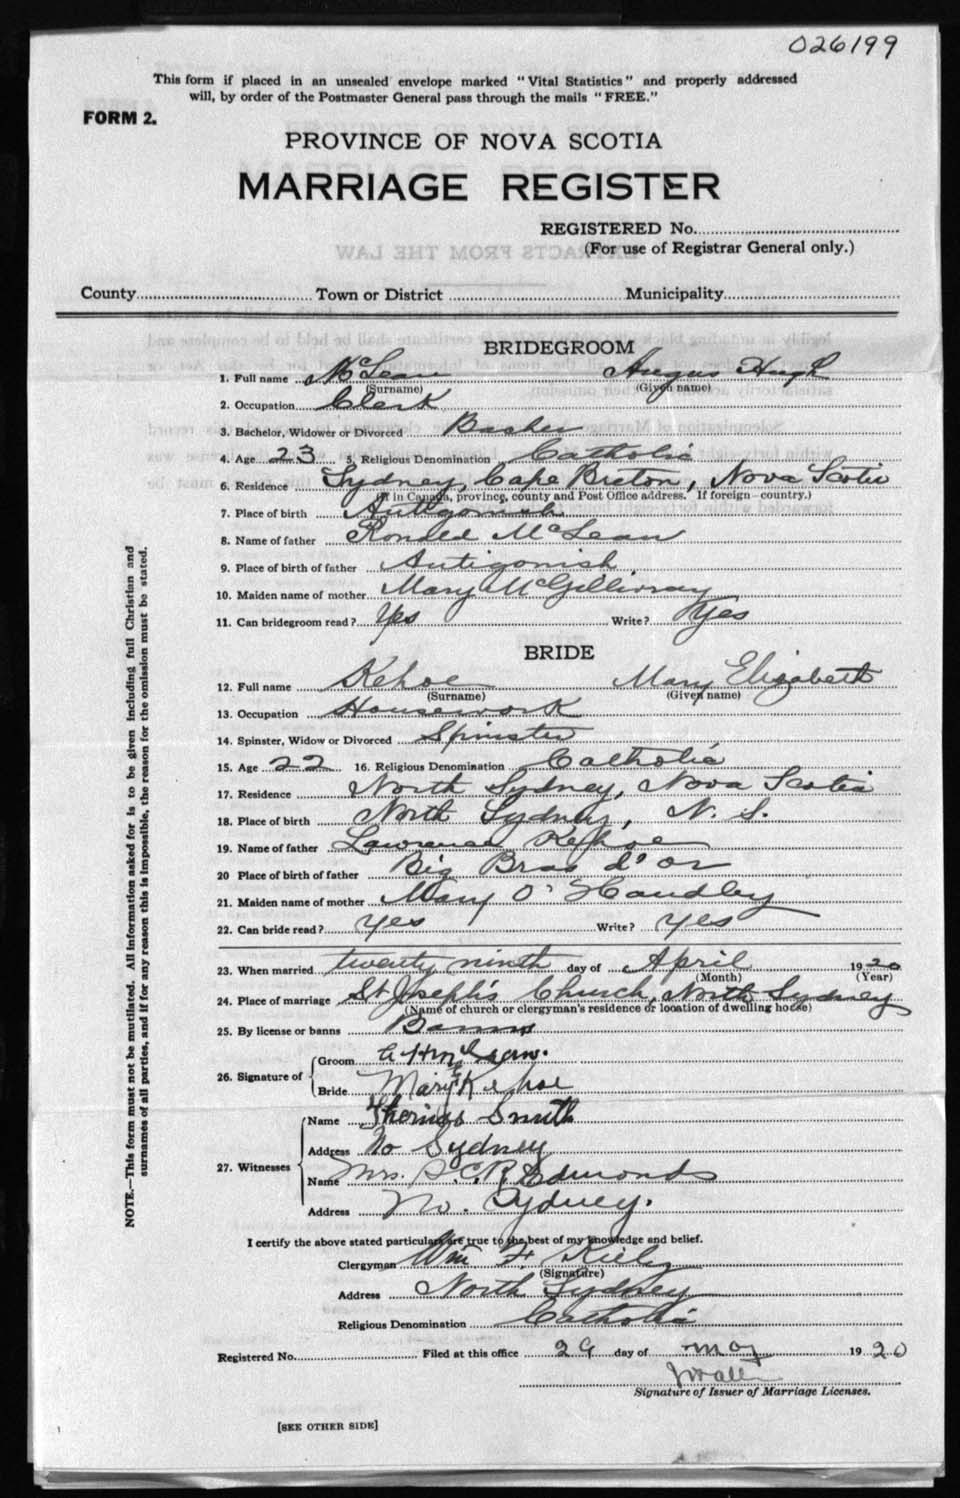 026199
This form if placed in an unsealed envelope marked "Vital Statistics" and properly addressed
will, by order of the Postmaster General pass through the mails "FREE."
FORM 2.
PROVINCE OF NOVA SCOTIA
MARRIAGE REGISTER
REGISTERED No.
(For use of Registrar General only.)
County Town or District Municipality
BRIDEGROOM
1. Full name McLean Angus Hugh
(Surname) (Given name)
2. Occupation Clerk
3. Bachelor, Widower or Divorced
4. Age 23 5. Religious Denomination Catholic
6. Residence Sydney, Cape Breton, Nova Scotia
(If in Canada, province, county and Post Office address. If foreign—country.)
7. Place of birth Antigonish
8. Name of father Ronald McLean
9. Place of birth of father Antigonish
10. Maiden name of mother Mary McGillivray
11. Can bridegroom read? Yes Write? Yes
BRIDE
12. Full name Kehoe Mary Elizabeth
(Surname) (Given name)
13. Occupation Housework
14. Spinster, Widow or Divorced Spinster
15. Age 22 16. Religious Denomination Catholic
17. Residence North Sydney, Nova Scotia
18. Place of birth North Sydney, N. S.
19. Name of father Lawrence Kehoe
20 Place of birth of father Big Bras d'or
21. Maiden name of mother Mary O'Handley
22. Can bride read? yes Write? yes
23. When married twenty ninth day of April 1920
(Month) (Year)
24. Place of marriage St Joseph's Church, North Sydney
(Name of church or clergyman's residence or location of dwelling house)
25. By license or banns Banns
26. Signature of Groom A H McLean.
Bride Mary Kehoe
27. Witnesses Name Thomas Smith
Address No Sydney
Name Mrs. Edmonds
Address No. Sydney.
I certify the above stated particulars are true to the best of my knowledge and belief.
Clergyman Wm F. Kiely
(Signature)
Address North Sydney
Religious Denomination Catholic
Registered No. Filed at this office 29 day of May 1920
Signature of Issuer of Marriage Licenses.
[SEE OTHER SIDE]
NOTE.—This form must not be mutilated. All information asked for is to be given including full Christian and
surnames of all parties, and if for any reason this is impossible, the reason for the omission must be stated.